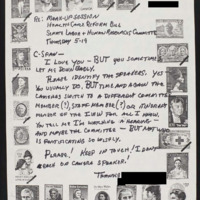 Re: MARK-UP SESSION
HEALTH CARE REFORM BILL
SENATE LABOR & HUMAN RESOURCES COMMITTEE
THURSDAY 5-19
C-SPAN -
I LOVE YOU - BUT YOU SOMETIMES
LET ME DOWN BADLY.
PLEASE IDENTIFY THE SPEAKERS. YES -
YOU USUALLY DO. BUT TIME AND AGAIN THE
CAMERAS SWITCH TO A DIFFERENT COMMITTEE
MEMBER (?), STAFF MEMBER (?) OR ITINERANT
MEMBER OF THE I.W.W. FOR ALL I KNOW.
YOU TELL ME I'M WATCHING A HEARING -
AND MAYBE THE COMMITTEE - BUT NOT WHO
IS PONTIFICATING SO WISELY.
PLEASE! KEEP IN TOUCH /
EACH ON CAMERA SPEAKER!
THANKS